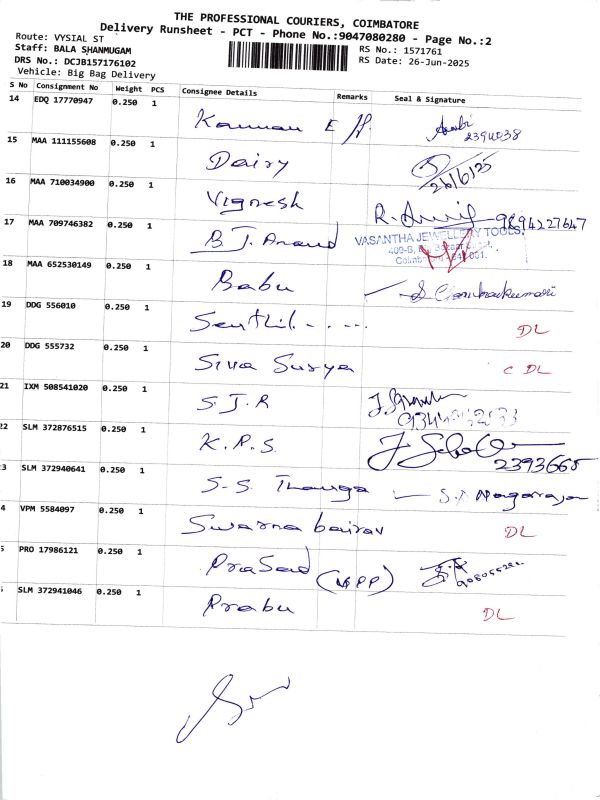 THE PROFESSIONAL COURIERS, COIMBATORE
Delivery Runsheet - PCT - Phone No.:9047080280 - Page No.:2
Route: VYSIAL ST
Staff: BALA SHANMUGAM
RS No.: 1571761
DRS No.: DCJB157176102
RS Date: 26-Jun-2025
Vehicle: Big Bag Delivery
S No Consignment No Weight PCS Consignee Details Remarks Seal & Signature
14 EDQ 17770947 0.250 1 Kannan E H. 2394038
15 MAA 111155608 0.250 1 Dairy 26/6/25
16 MAA 710034900 0.250 1 Vignesh R. 9894227647
17 MAA 709746382 0.250 1 B J. Anand VASANTHA JEWELLERY TOOLS,
18 MAA 652530149 0.250 1 Babu
19 DDG 556010 0.250 1 Senthil - - - - DL
20 DDG 555732 0.250 1 Siva Surya C DL
21 IXM 508541020 0.250 1 S.J.R
22 SLM 372876515 0.250 1 K.P.S 2393665
3 SLM 372940641 0.250 1 S-S Thanga S.T Nagarajan
4 VPM 5584097 0.250 1 Swarna bairav DL
5 PRO 17986121 0.250 1 Prasad (VPP)
SLM 372941046 0.250 1 Prabu DL